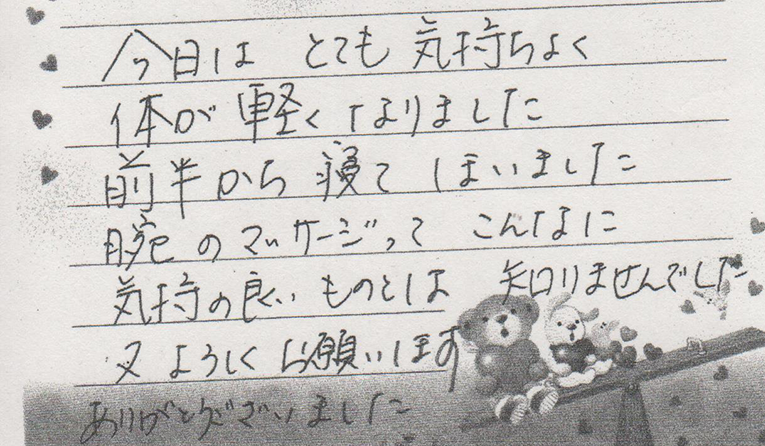 今日は とても 気持ちよく
体が 軽く なりました
前半から 寝て しまいました
腕の マッサージって こんなに
気持の良い ものとは 知りませんでした
又 よろしく お願いします
ありがとうございました